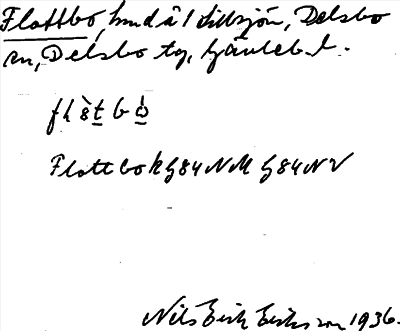 Flattbo, hmd å l. Dellsjön, Delsbo
sn, Delsbo tg, Gävleb. l.
Flattbo h G84NM G84NV
Nils Erik Eriksson 1936.